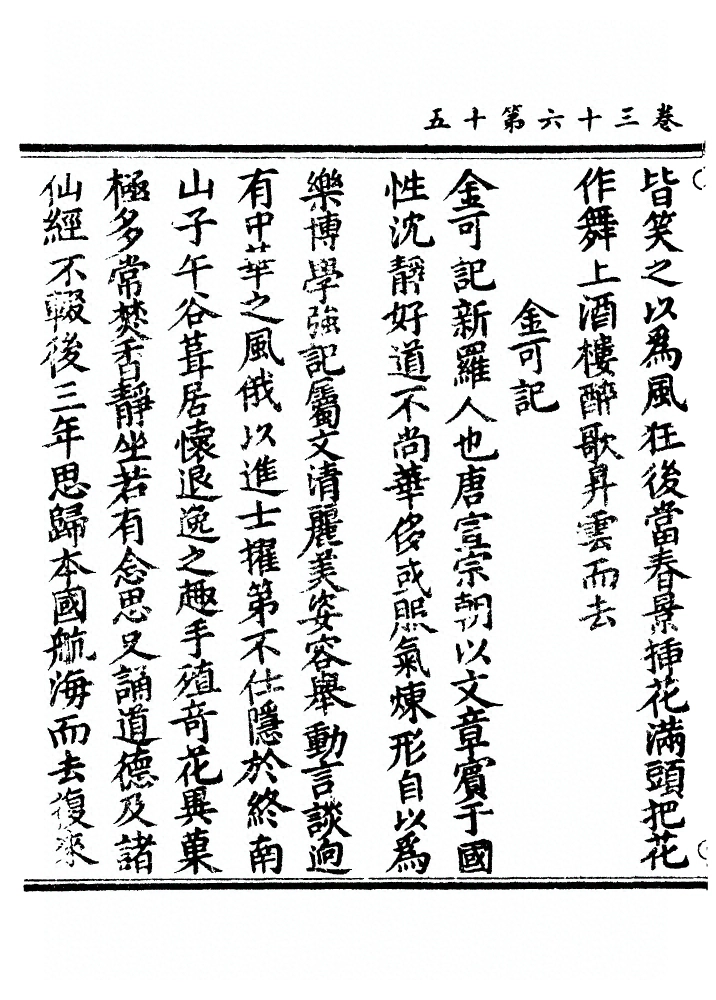 卷三十六第十五
皆笑之以爲風狂後當春景揷花滿頭把花
作舞上酒樓醉歌昇雲而去
金可記
金可記新羅人也唐宣宗朝以文章賓于國
性沈靜好道不尚華侈或服氣煉形自以爲
樂博學強記屬文清麗美姿容舉動言談逈
有中華之風俄以進士擢第不仕隱於終南
山子午谷葺居懷退逸之趣手殖奇花異菓
極多常焚香靜坐若有念思又誦道德及諸
仙經不輟後三年思歸本國航海而去復來